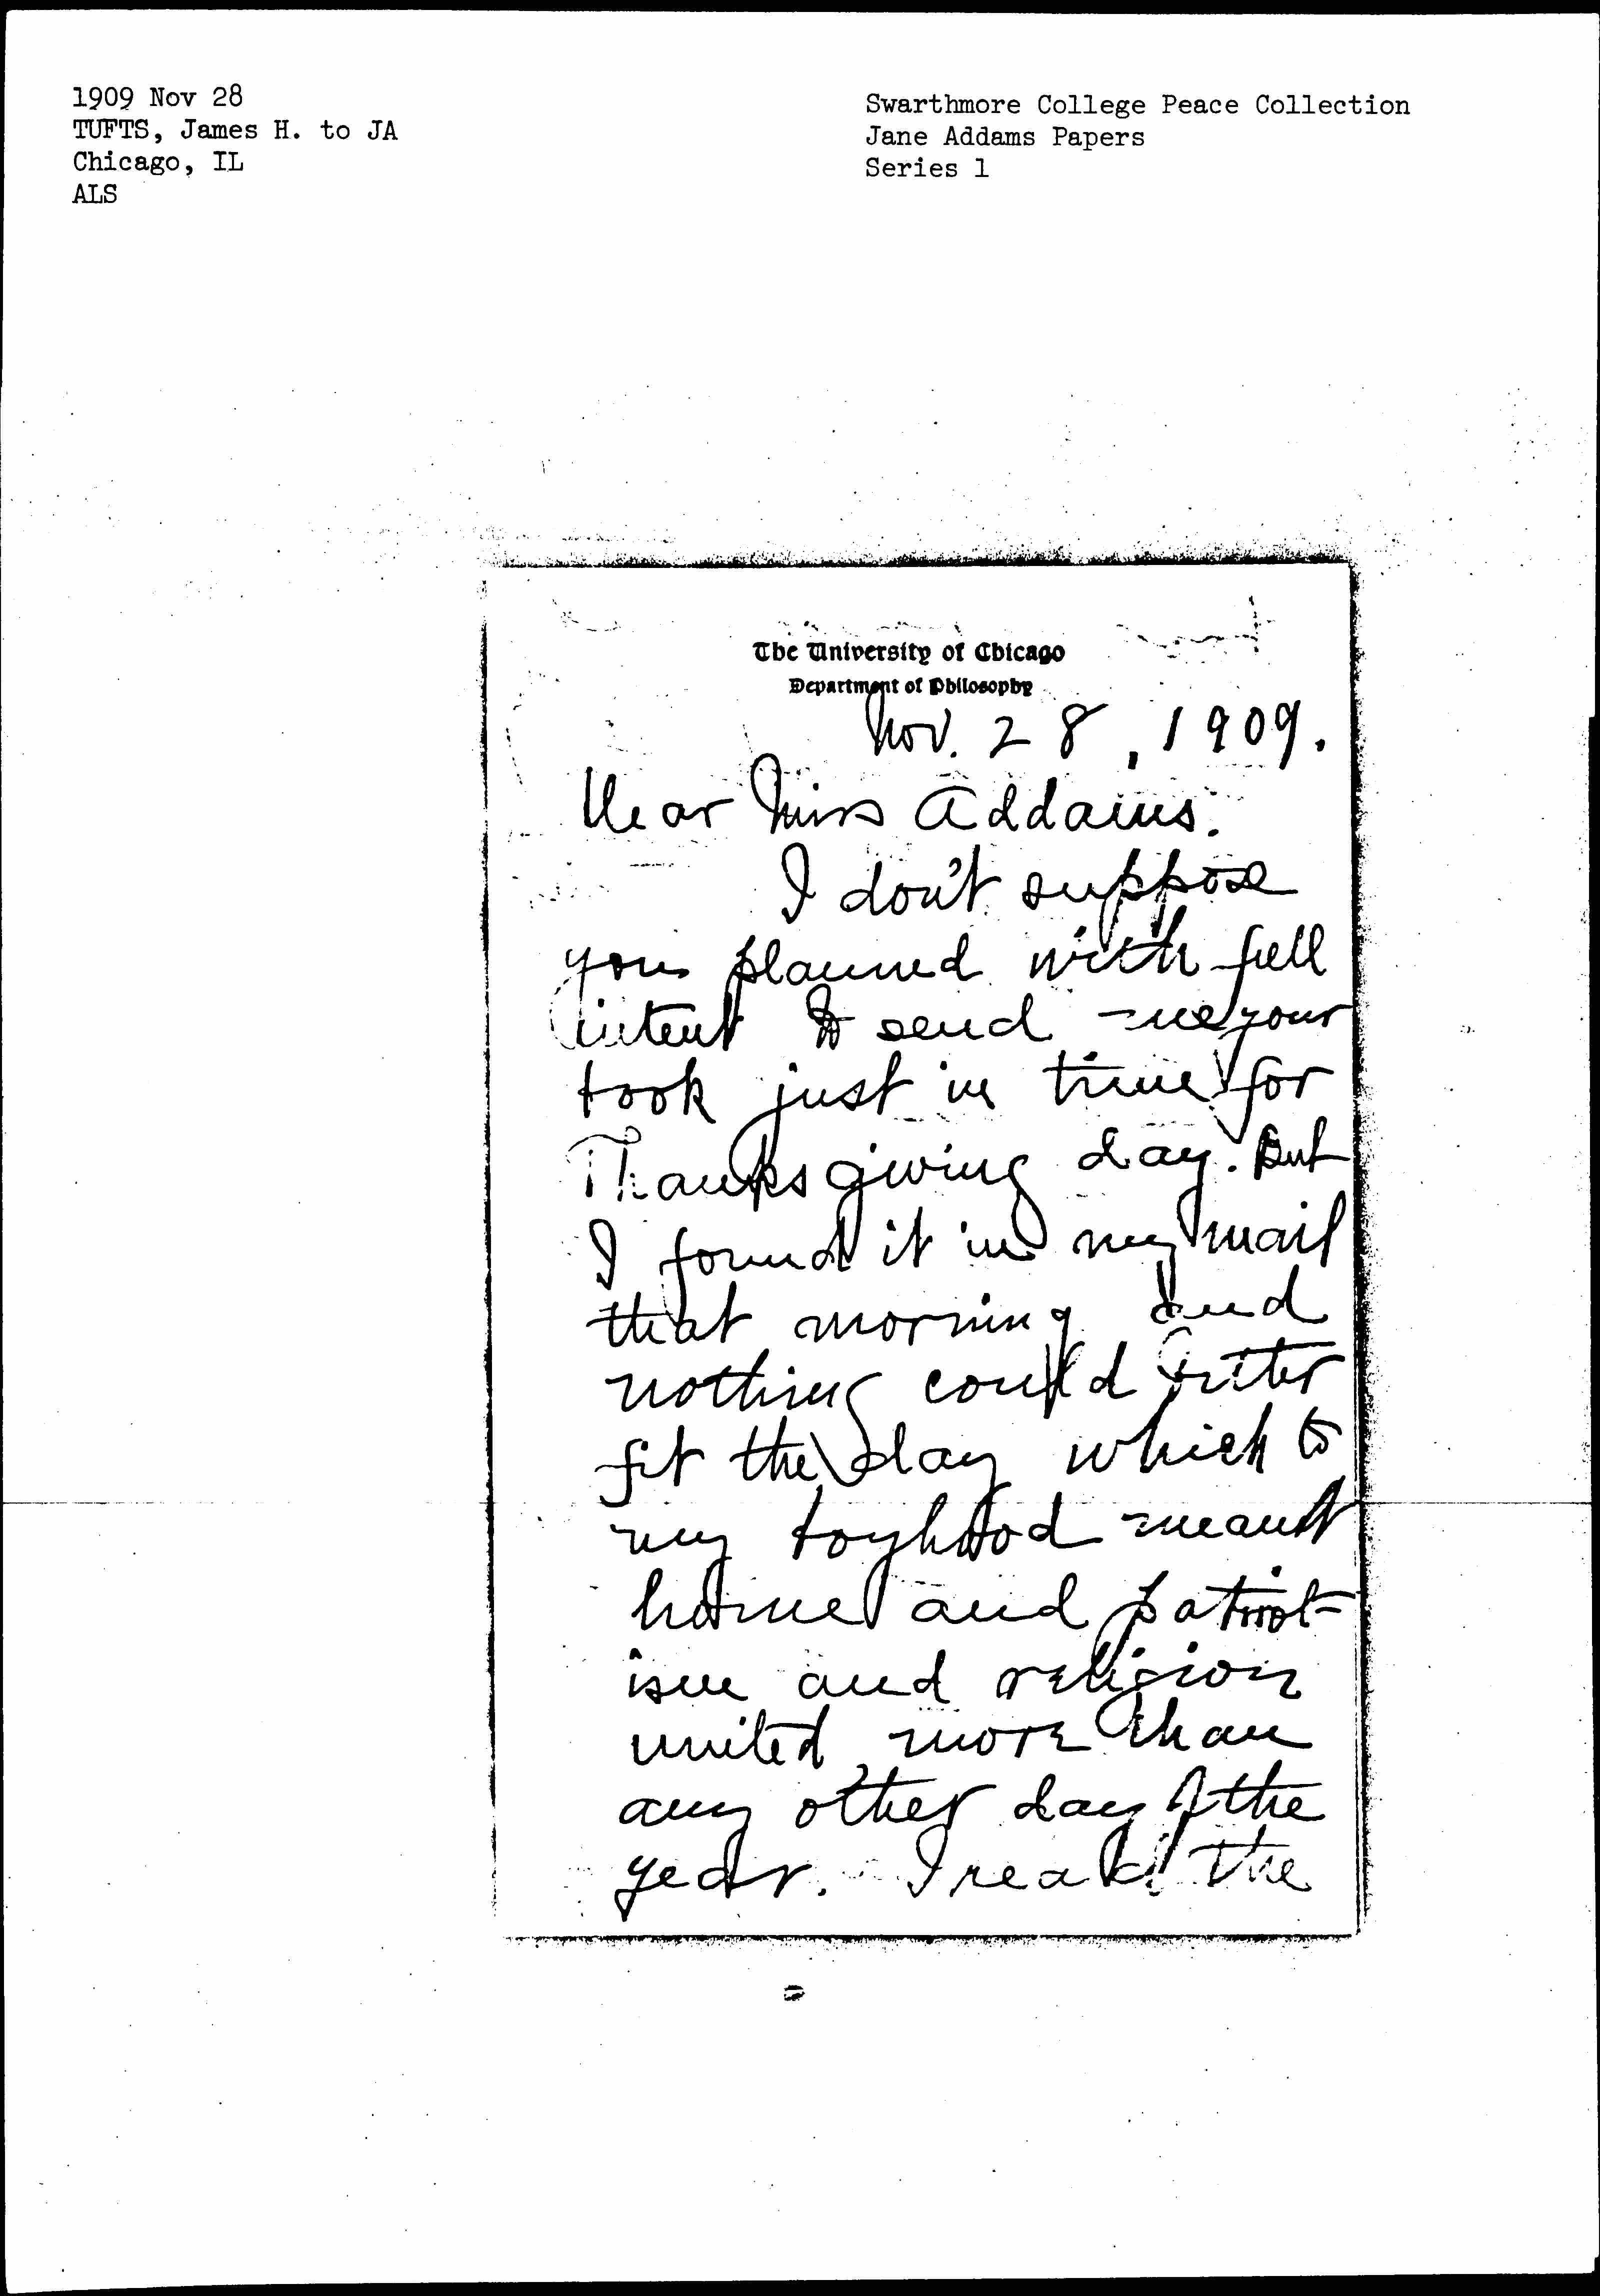 1909 Nov 28
TUFTS, James H. to JA
Chicago, IL
ALS
Swarthmore College Peace Collection
Jane Addams Papers
Series 1
The University of Chicago
Department of Philosophy
Nov. 28, 1909.
Dear Miss Addams.
I don't suppose
you planned with fell
intent to send me your
book just in time for
Thanksgiving day. But
I found it in my mail
that morning and
nothing could better
fit the day which to
my boyhood meant
home and patriot-
ism and religion
united more than
any other day of the
year. I read the